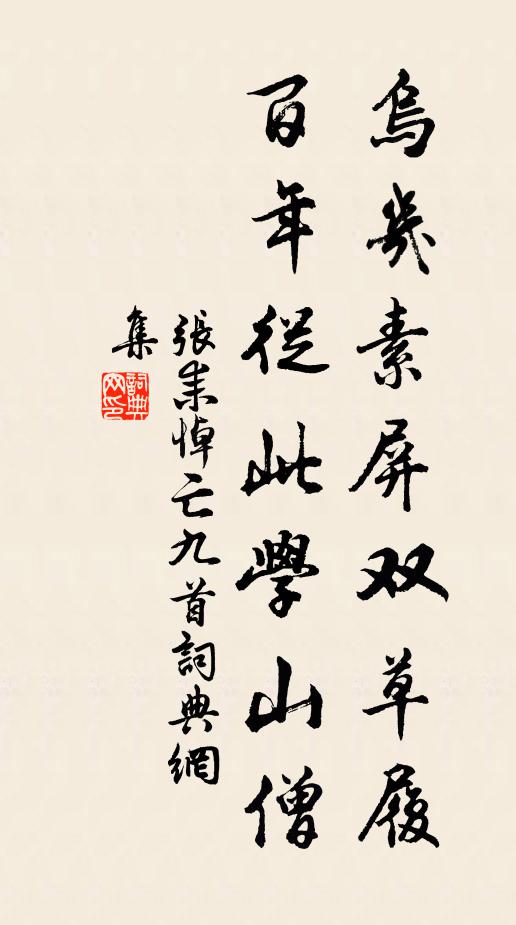 烏几素屏双草履
百年從此學山僧
張耒悼亡九首詞典網
集
詞典
网印